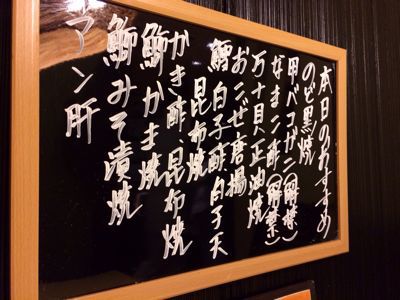 本日のおすすめ
のど黒焼
甲ベコガニ(解禁)
なまこ酢(解禁)
万十貝正油焼
おこぜ唐揚
鱈白子酢白子天
昆布焼
かき酢昆布焼
鰤かま焼
鰤みそ漬焼
アン肝